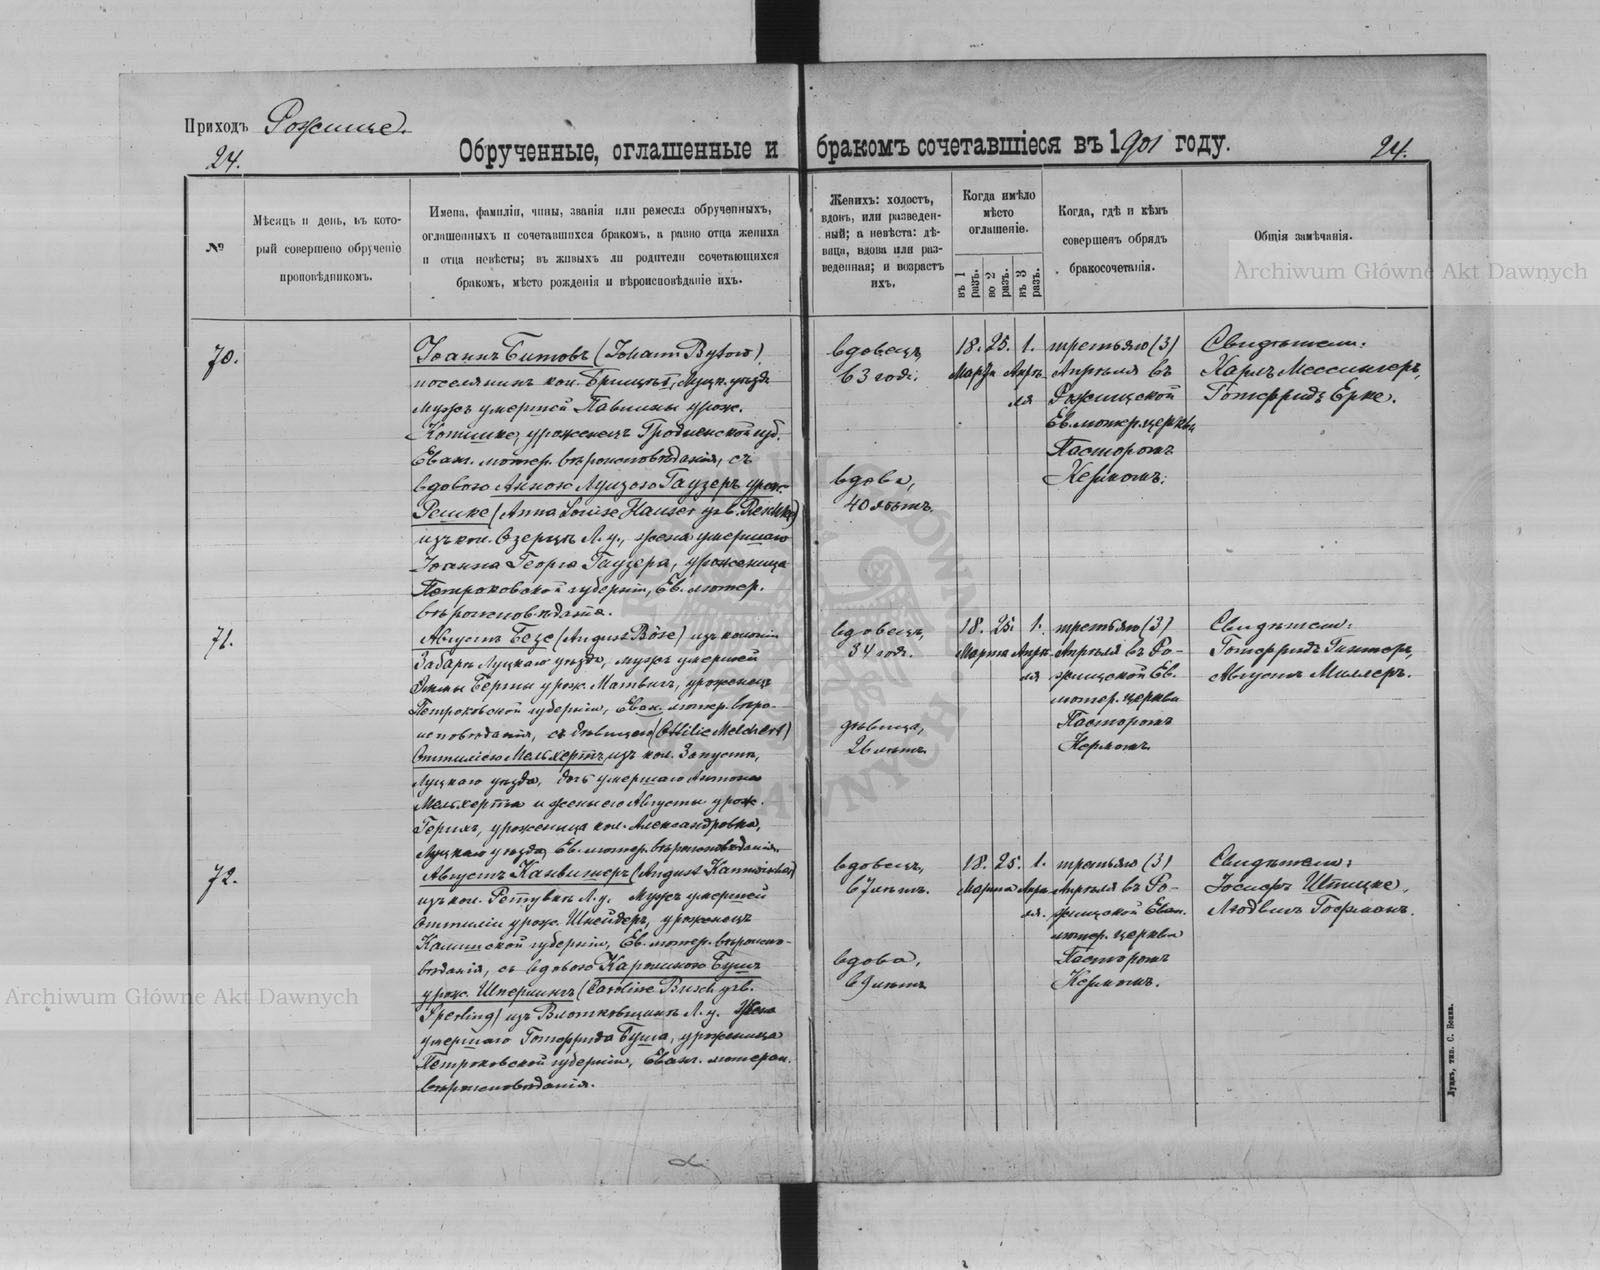 Приходъ Рожище.
24.
Обрученные, оглашенные и бракомъ сочетавшіеся въ 1901 году.
24.
№
Мѣсяцъ и день, въ кото-
рый совершено обрученіе
проповѣдникомъ.
Имена, фамиліи, чины, званія или ремесла обрученныхъ,
оглашенныхъ и сочетавшихся бракомъ, а равно отца жениха
и отца невѣсты; въ живыхъ ли родители сочетающихся
бракомъ, мѣсто рожденія и вѣроисповѣданіе ихъ.
Женихъ: холостъ,
вдовъ, или разведен-
ный; а невѣста: дѣ-
вица, вдова или раз-
веденная; и возрастъ
ихъ.
Когда имѣло
мѣсто
оглашеніе.
въ 1 разъ.
во 2 разъ.
въ 3 разъ.
Когда, гдѣ и кѣмъ
совершенъ обрядъ
бракосочетанія.
Общія замѣчанія.
Archiwum Główne Akt Dawnych
70.
Іоаннъ Битовъ (Johann Bytow)
поселянинъ кол. Луцк. уѣзда
Мужъ умершей Павлины урож.
уроженецъ Гродненской губ.
Еван. лютер. вѣроисповѣданія, съ
вдовою Анною Луизою Гаузеръ урож.
Решке (Anna Louise Hauser geb. Reschke)
изъ кол. Озерцы Л. у., жена умершаго
Іоанна Георга Гаузера, уроженица
Петроковской губерніи, Ев. лютер.
вѣроисповѣданія.
вдовецъ,
63 годъ.
вдова,
40 лѣтъ.
18. 25. 1.
Марта Апрѣ-
ля
третьяго (3)
Апрѣля въ
Рожищской
Ев. лютер. церкви
Пасторомъ
Керномъ.
Свидѣтели:
Карлъ Мессингеръ,
Готфридъ Ерке.
71.
Августъ Безе (August Böse) изъ колоніи
Забара Луцкаго уѣзда, мужъ умершей
Эммы Берты урож. Матвигъ, уроженецъ
Петроковской губерніи, Еван. лютер. вѣро-
исповѣданія, съ дѣвицею (Ottilie Melchert)
Оттиліею Мельхертъ, изъ кол. Запустъ,
Луцкаго уѣзда, дочь умершаго Антона
Мельхерта и жены его Августы урож.
уроженица кол. Александровка,
Луцкаго уѣзда, Ев. лютер. вѣроисповѣданія.
вдовецъ,
34 годъ.
дѣвица,
26 лѣтъ.
18. 25. 1.
Марта Апрѣ-
ля
третьяго (3)
Апрѣля въ Ро-
жищской Ев.
лютер. церкви
Пасторомъ
Керномъ.
Свидѣтели:
Готфридъ Гинтеръ,
Августъ Миллеръ.
72.
Августъ Канвишеръ (August Kannwischer)
изъ кол. Л. у. Мужъ умершей
Оттиліи урож. Шнейдеръ, уроженецъ
Калишской губерніи, Ев. лютер. вѣроиспо-
вѣданія, съ вдовою Каролиною Бушъ
урож. Шперлингъ (Caroline Busch geb.
Sperling) изъ Л. у. Жена
умершаго Готфрида Буша, уроженица
Петроковской губерніи, Еван. лютеран.
вѣроисповѣданія.
вдовецъ,
67 лѣтъ.
вдова,
69 лѣтъ.
18. 25. 1.
Марта Апрѣ-
ля.
третьяго (3)
Апрѣля въ Ро-
жищской Еван.
лютер. церкви
Пасторомъ
Керномъ.
Свидѣтели:
Іосифъ
Людвигъ Гофманъ.
Archiwum Główne Akt Dawnych
Луцкъ, тип. С. Бокка.